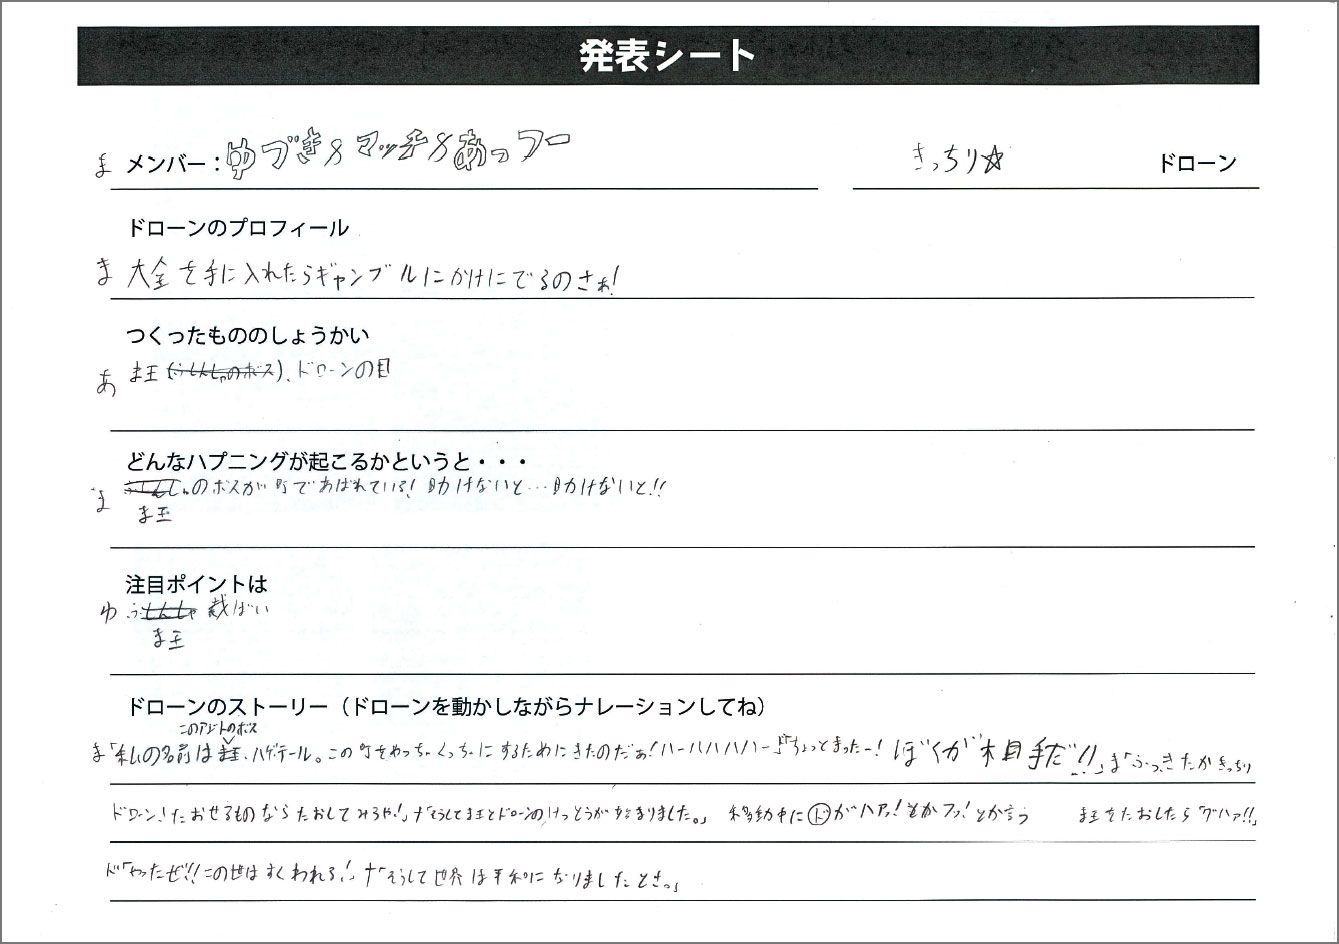 発表シート
ま メンバー：ゆづき&マッチ&あっつー きっちり☆ ドローン
ドローンのプロフィール
ま 大金を手に入れたらギャンブルにかけにでるのさぁ!
つくったもののしょうかい
あ ま王(ふしんしゃのボス)、ドローンの目
どんなハプニングが起こるかというと・・・
ま ふしんしゃのボスが町であばれている! 助けないと…助けないと!!
ま王
注目ポイントは
ゆ ふしんしゃ 裁ばい
ま王
ドローンのストーリー（ドローンを動かしながらナレーションしてね）
このアジトのボス
ま「私の名前はま王、ハゲテール。この町をめっちゃくっちゃにするためにきたのだぁ!ハーハハハハー」ド「ちょっとまったー! ぼくが相手だ!!」ま「ふっ、きたかきっちり
ドローン!たおせるものならたおしてみろや!」ナ「そうしてま王とドローンのけっとうが始まりました。」 移動中にドがハァッ!とかフッ!とか言う ま王をたおしたら「グハァ!!」
ド「やったぜ!!この世はすくわれる!」ナ「そうして世界は平和になりましたとさ。」